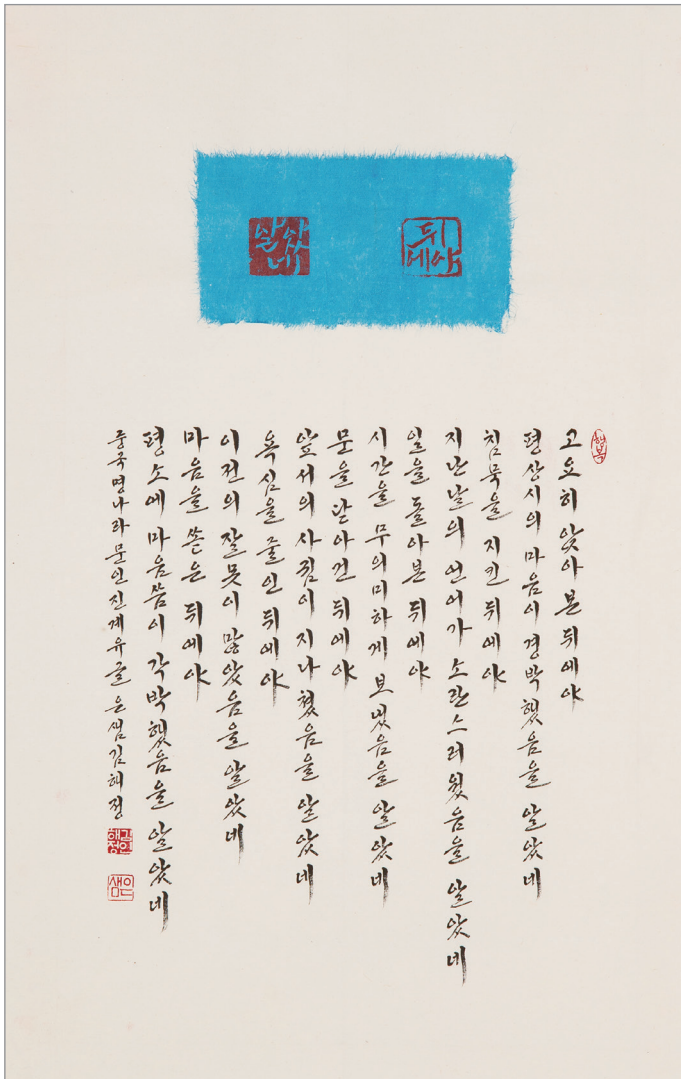 뒤
에야
알았
네
행복
고요히 앉아 본 뒤에야
평상시의 마음이 경박했음을 알았네
침묵을 지킨 뒤에야
지난날의 언어가 소란스러웠음을 알았네
일을 돌아본 뒤에야
시간을 무의미하게 보냈음을 알았네
문을 닫아건 뒤에야
앞서의 사귐이 지나쳤음을 알았네
욕심을 줄인 뒤에야
이전의 잘못이 많았음을 알았네
마음을 쏟은 뒤에야
평소에 마음씀이 각박했음을 알았네
중국명나라 문인 진계유 글 은샘 김혜정
은샘